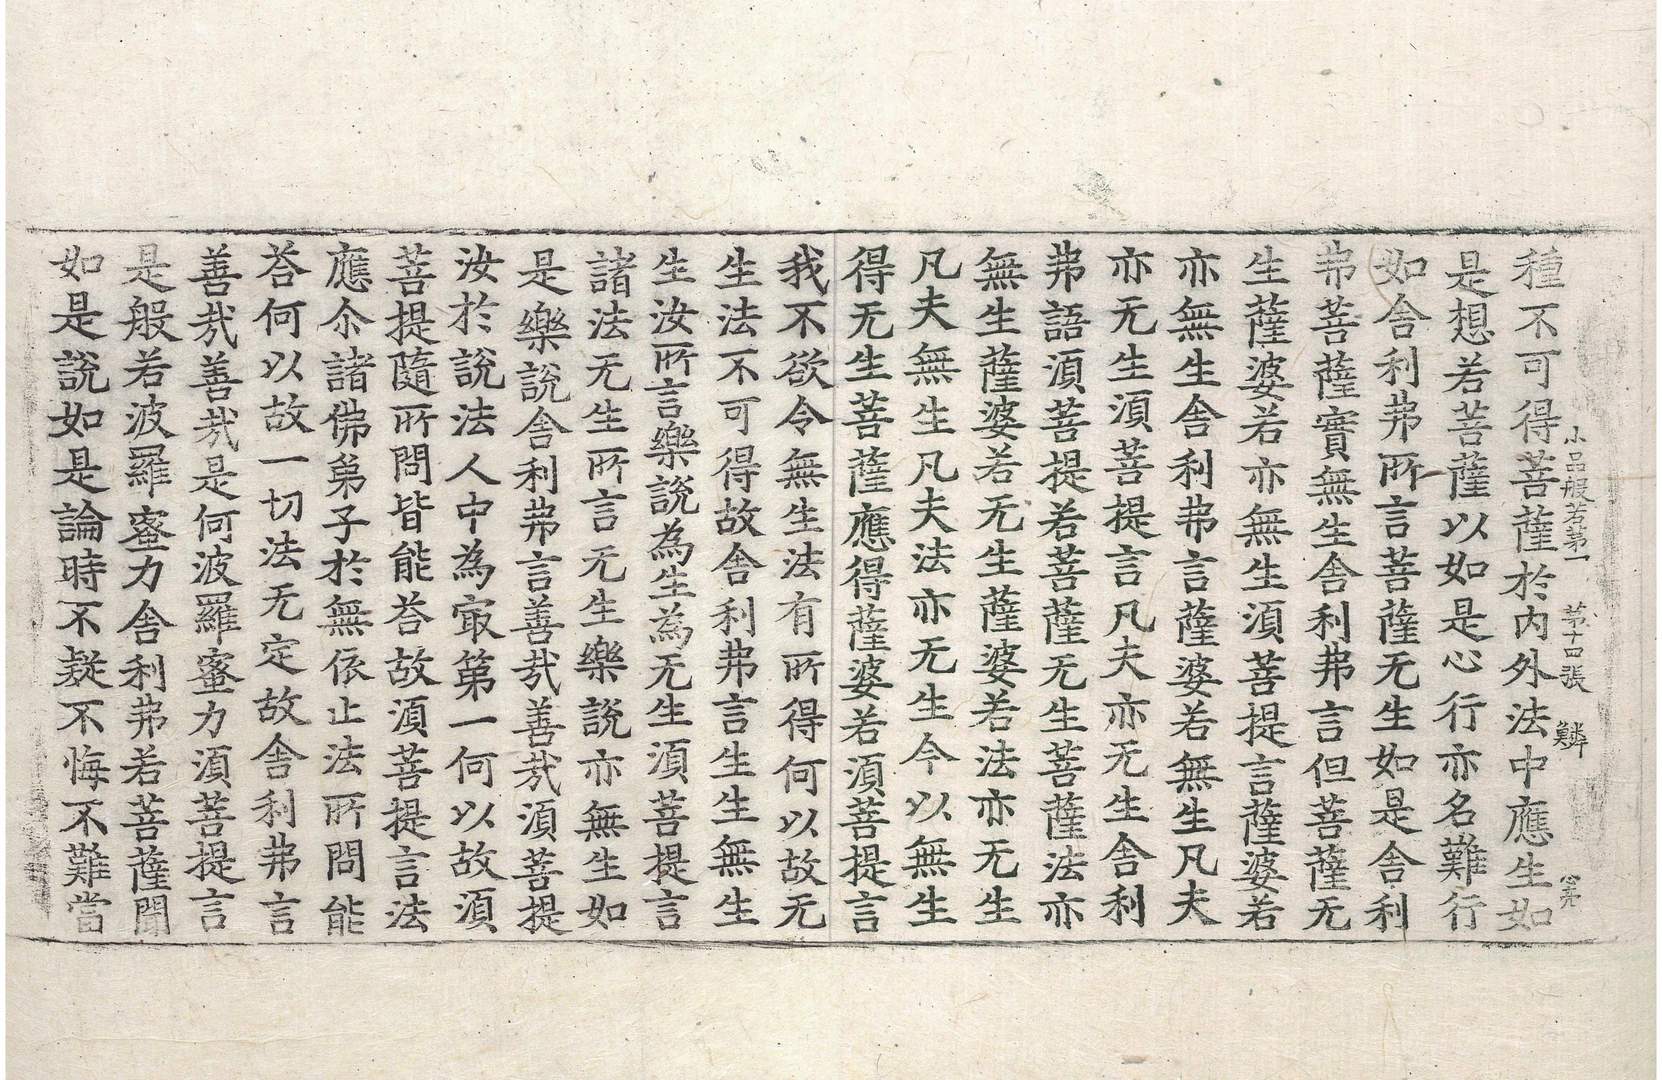 小品般若第一 第十四張 鱗
種不可得菩薩於內外法中應生如
是想若菩薩以如是心行亦名難行
如舍利弗所言菩薩无生如是舍利
弗菩薩實無生舍利弗言但菩薩无
生薩婆若亦無生湏菩提言薩婆若
亦無生舍利弗言薩婆若無生凡夫
亦无生湏菩提言凡夫亦无生舍利
弗語湏菩提若菩薩无生菩薩法亦
無生薩婆若无生薩婆若法亦无生
凡夫無生凡夫法亦无生今以無生
得无生菩薩應得薩婆若湏菩提言
我不欲令無生法有所得何以故无
生法不可得故舍利弗言生生無生
生汝所言樂說為生為无生湏菩提言
諸法无生所言无生樂說亦無生如
是樂說舍利弗言善哉善哉湏菩提
汝於說法人中為冣第一何以故湏
菩提隨所問皆能荅故湏菩提言法
應尒諸佛弟子於無依止法所問能
荅何以故一切法无定故舍利弗言
善哉善哉是何波羅蜜力湏菩提言
是般若波羅蜜力舍利弗若菩薩聞
如是說如是論時不疑不悔不難當